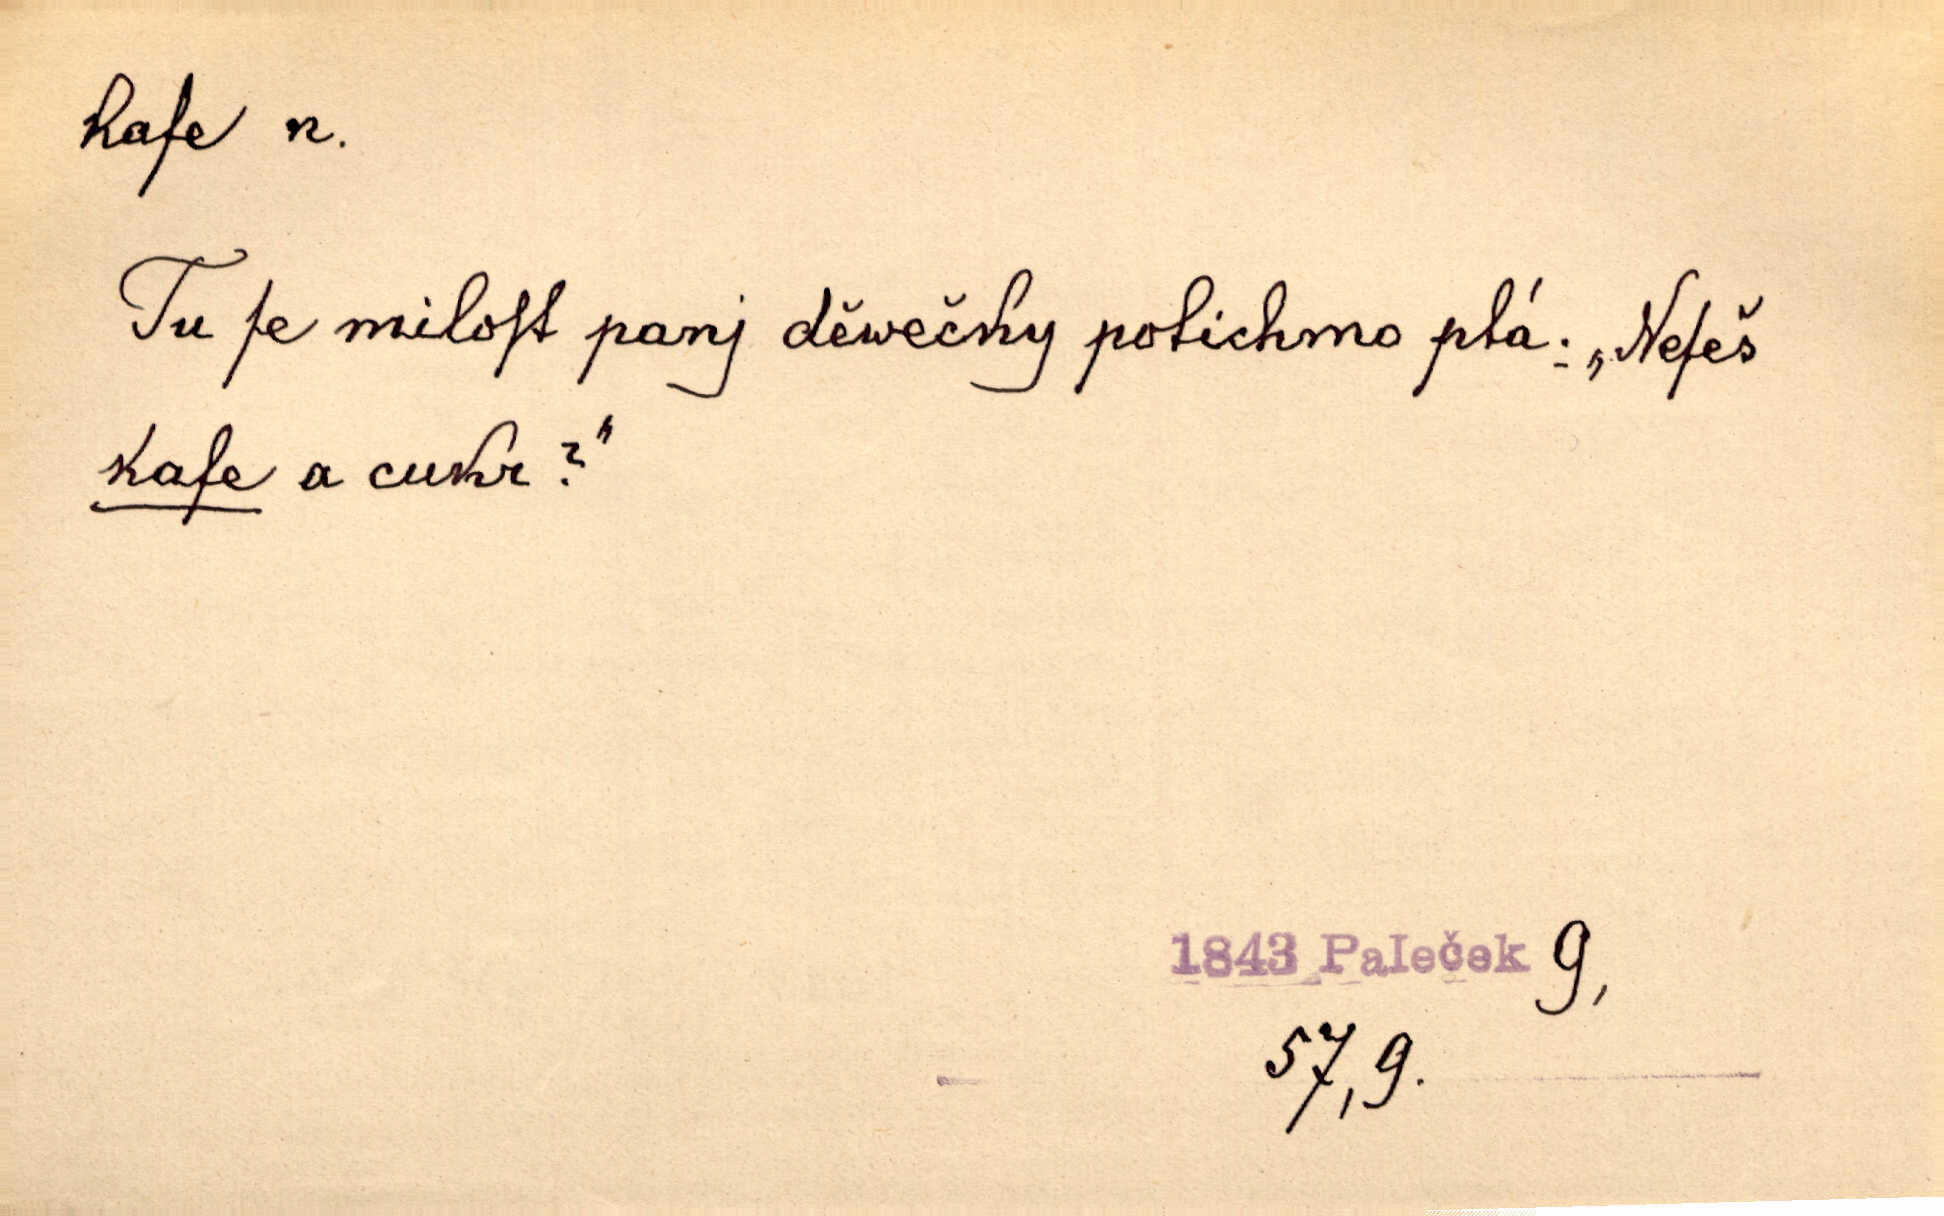 kafe n.
Tu ſe miloſt panj děwečky potichmo ptá: „Neſeš
kafe a cukr?"
1843 Paleček 9,
57,9.